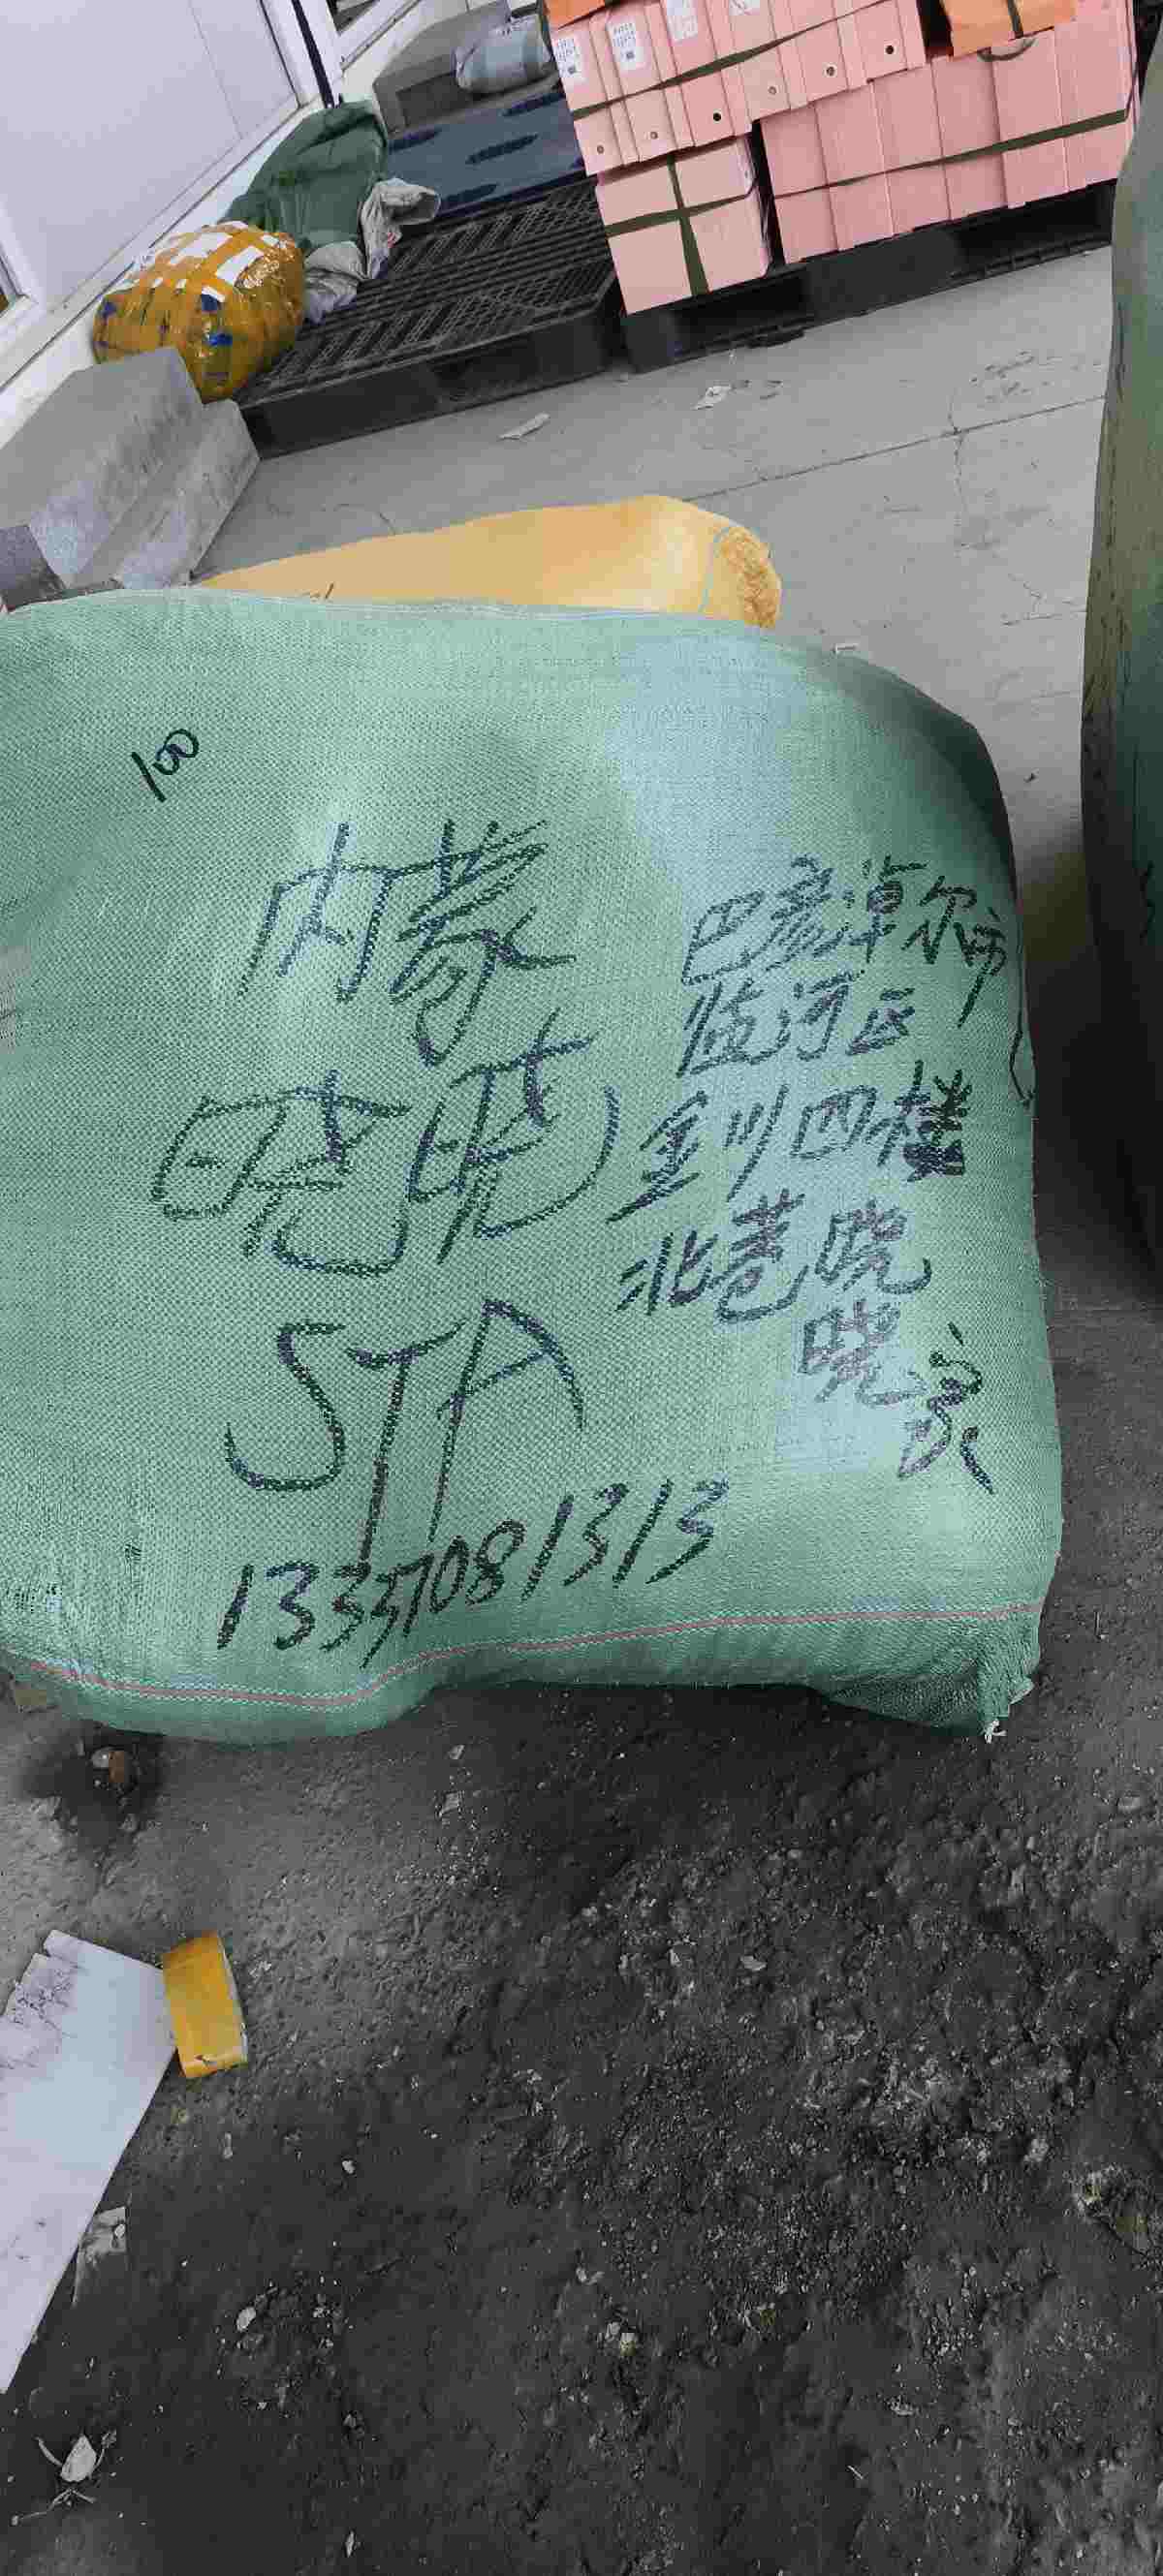 100
内蒙
晓晓
STA
13337081313
巴彦淖尔市
临河区
金川四楼
北巷晓
晓家